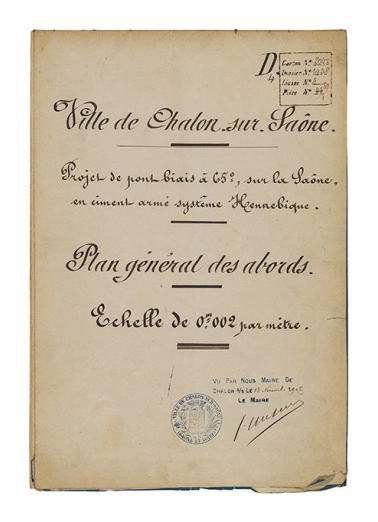 D
4
Carton Nº
Dossier Nº
Liasse Nº
Pièce Nº
Ville de Chalon-sur-Saône.
Projet de pont biais à 65º, sur la Saône.
en ciment armé système Hennebique.
Plan général des abords.
Echelle de 0m002 par mètre.
VU PAR NOUS MAIRE DE
CHALON S/S LE 13 Novembre
LE MAIRE
VILLE DE CHALON-SUR-SAÔNE